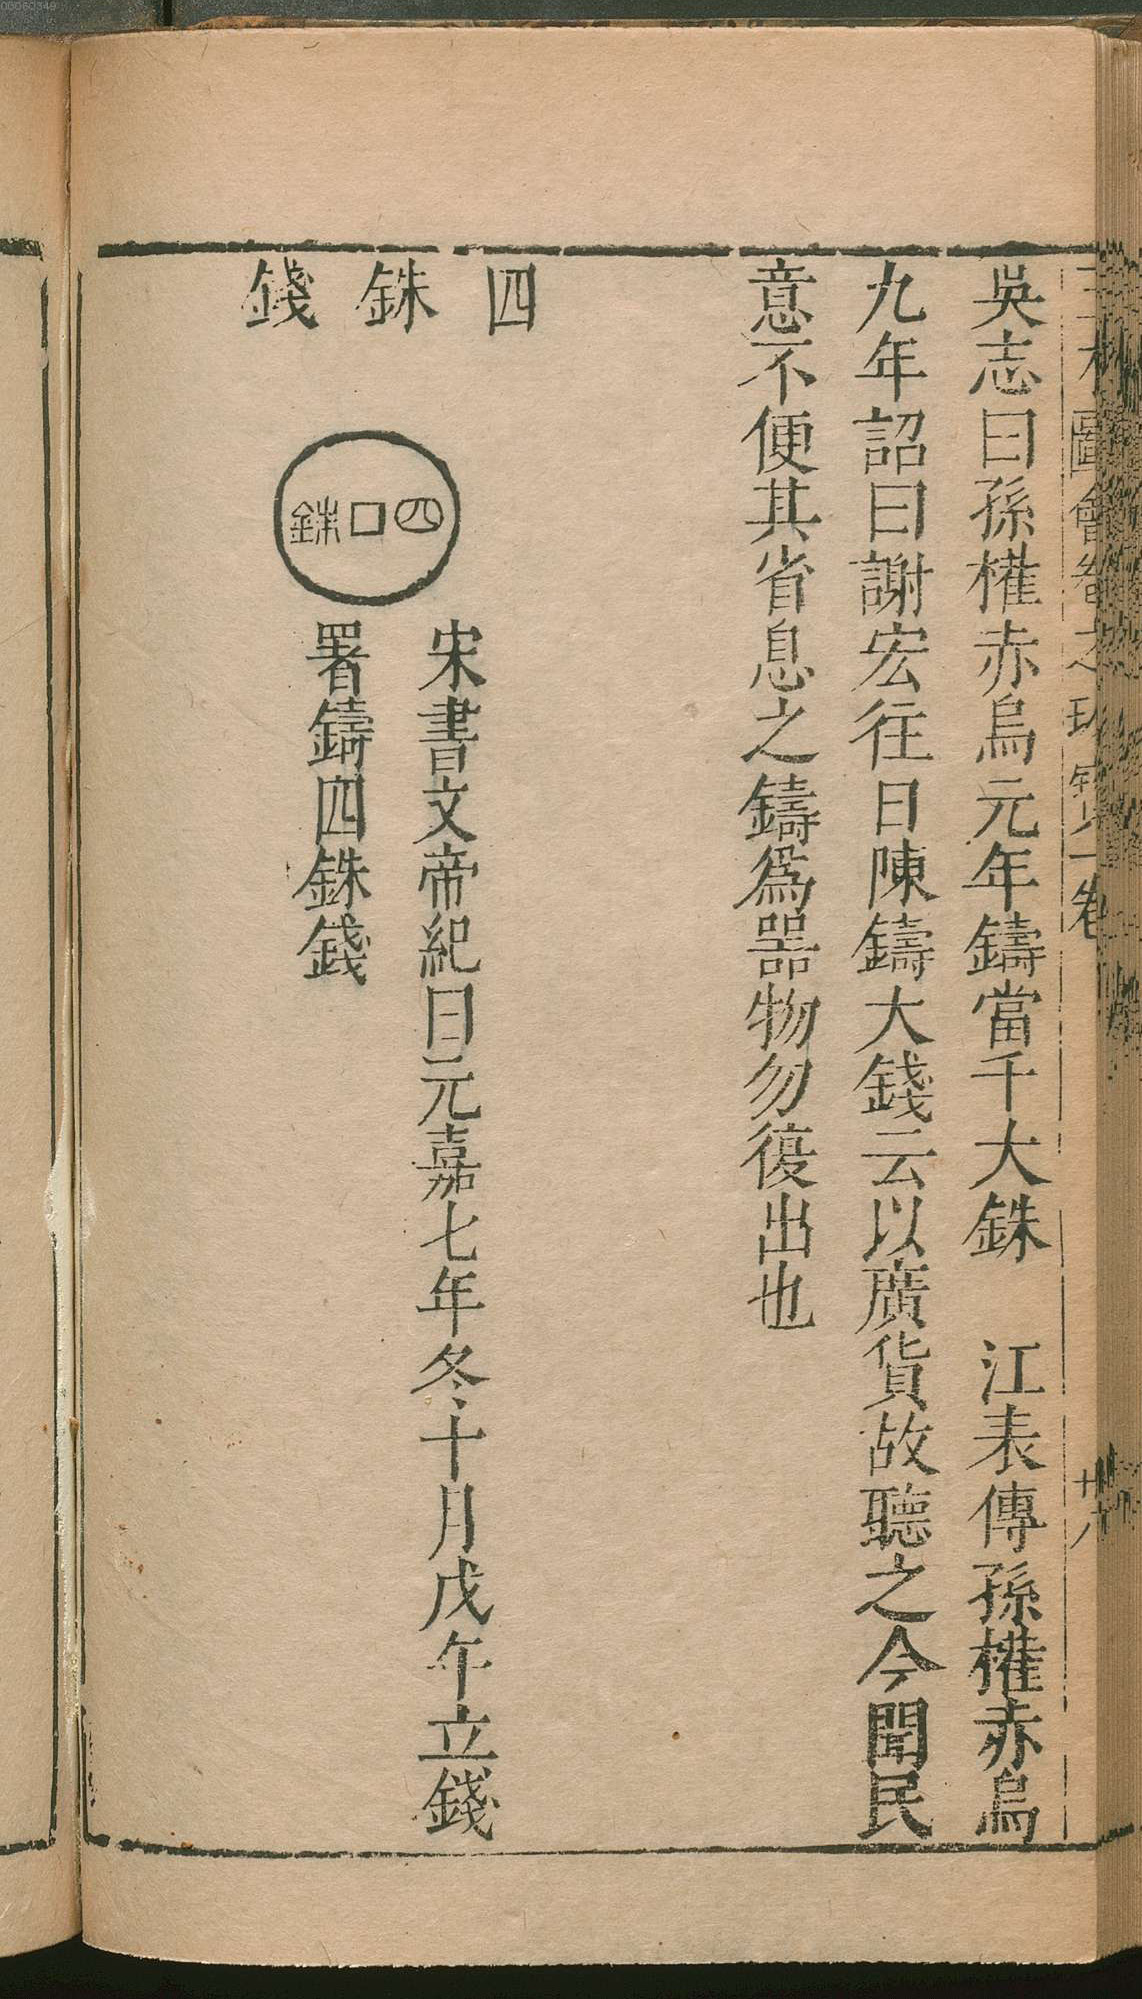 吳志曰孫權赤烏元年鑄當千大銖　江表傳孫權赤烏
九年詔曰謝宏往日陳鑄大錢云以廣貨故聽之今聞民
意不便其省息之鑄爲器物勿復出也
四銖錢
四銖
宋書文帝紀曰元嘉七年冬十月戊午立錢
署鑄四銖錢
00060349